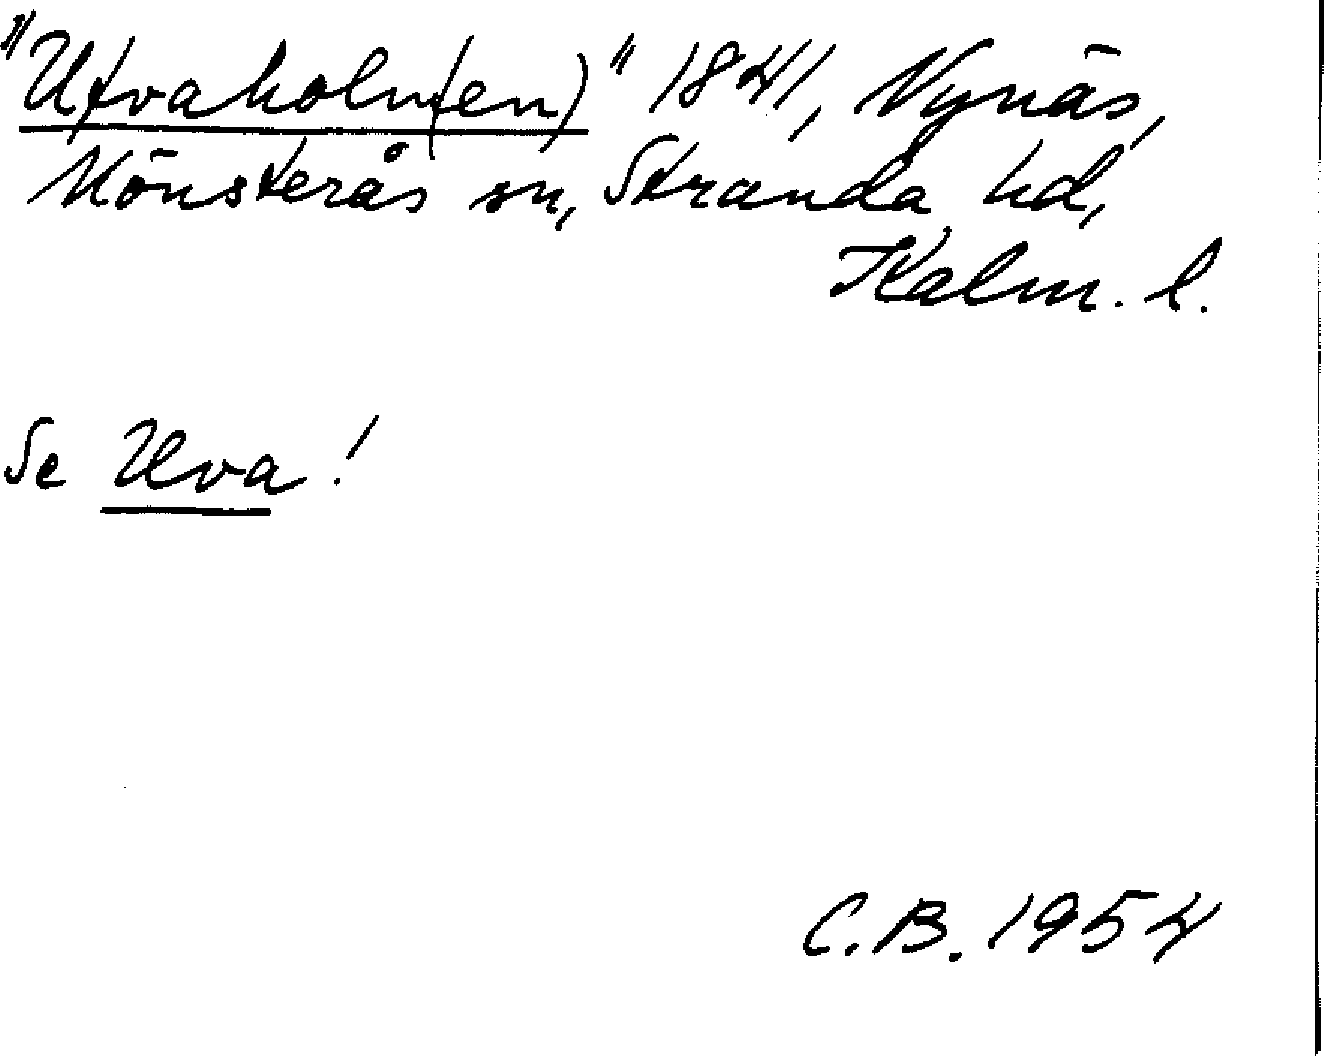 "Ufvaholm(en)" 1841, Nynäs,
Mönsterås sn, Stranda hd,
Kalm. l.
Se Uva!
C.B. 1954